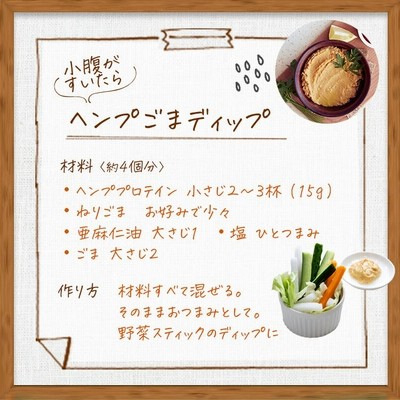 小腹が
すいたら
ヘンプごまディップ
材料〈約4個分〉
・ヘンププロテイン 小さじ2〜3杯(15g)
・ねりごま お好みで少々
・亜麻仁油 大さじ1 ・塩 ひとつまみ
・ごま 大さじ2
作り方 材料すべて混ぜる。
そのままおつまみとして。
野菜スティックのディップに